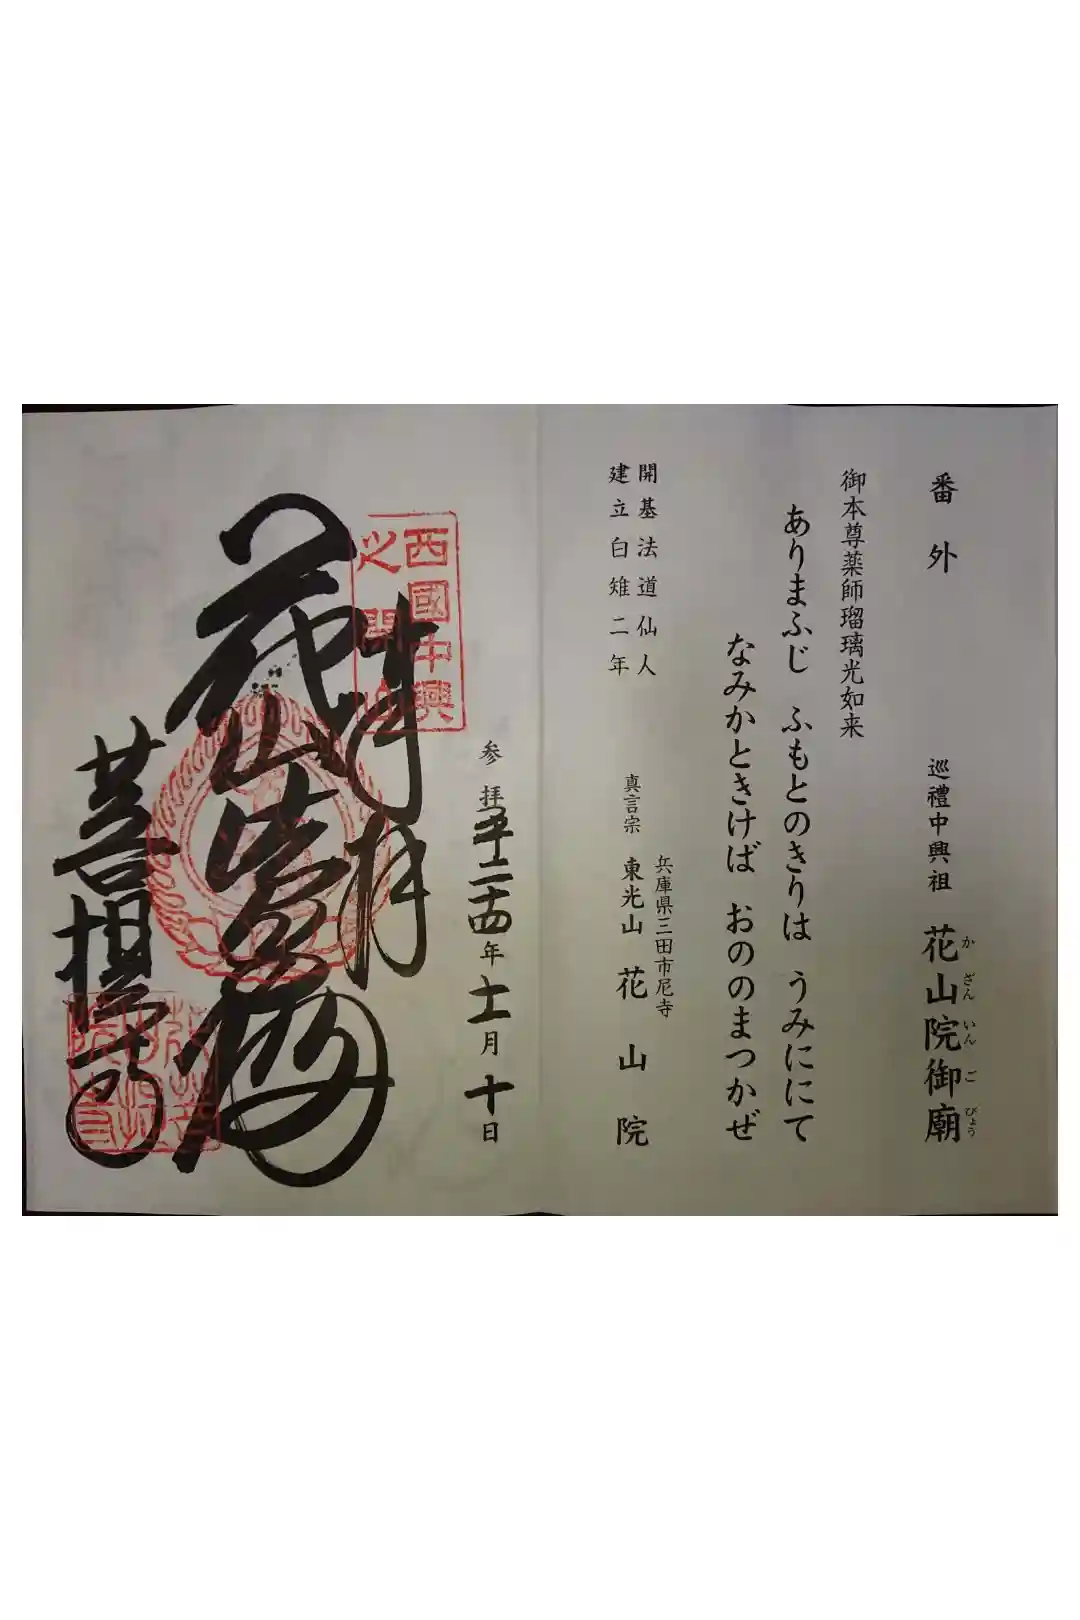 番外 巡禮中興祖 花山院御廟
かざんいんごびょう
御本尊薬師瑠璃光如来
ありまふじ ふもとのきりは うみににて
なみかときけば おののまつかぜ
開基法道仙人
建立白雉二年
兵庫県三田市尼寺
真言宗 東光山 花山院
参拝 平二十四年十一月十日
西國中興
之開山
奉拝
花山法皇殿
菩提寺